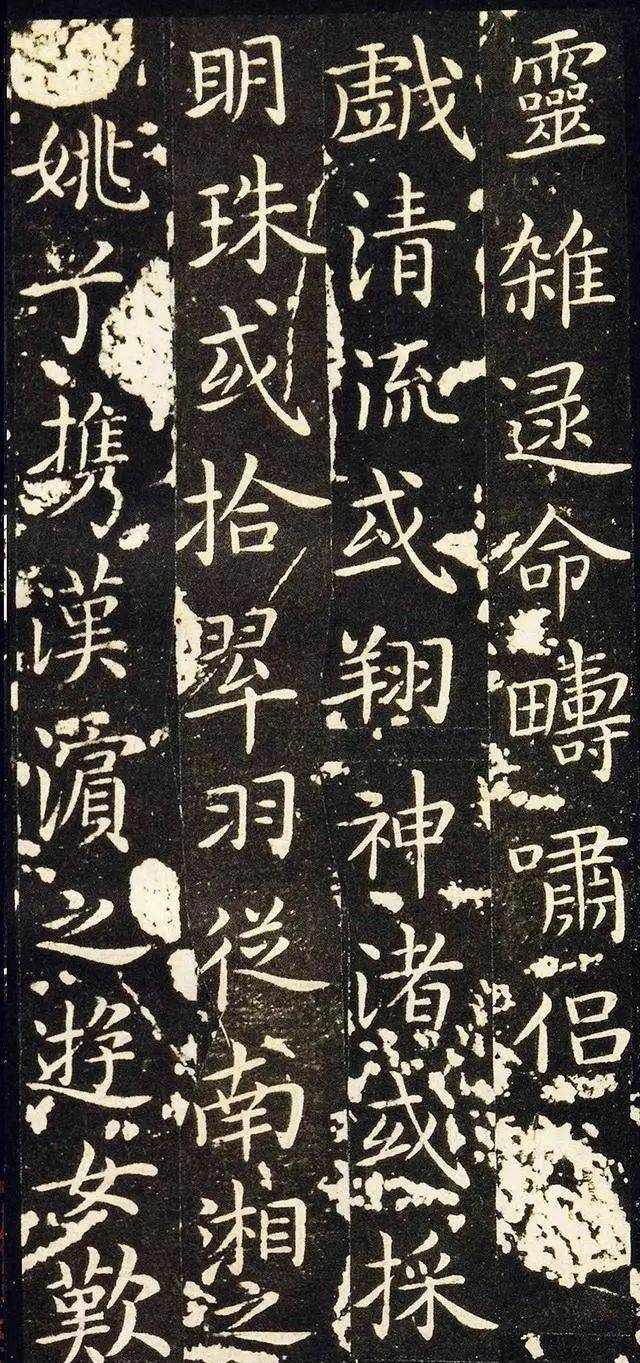 靈雜遝命疇嘯侶
戯清流或翔神渚或採
明珠或拾翠羽從南湘之
姚予攜漢濵之遊女歎